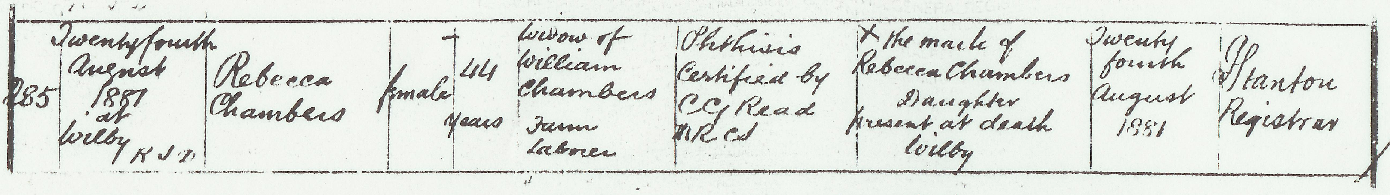 285
Twenty fourth
August
1881
at
Wilby R S D
Rebecca
Chambers
female
44
years
Widow of
William
Chambers
Farm
Labourer
Phthisis
Certified by
C G Read
MRCS
X the mark of
Rebecca Chambers
Daughter
present at death
Wilby
Twenty
fourth
August
1881
Stanton
Registrar